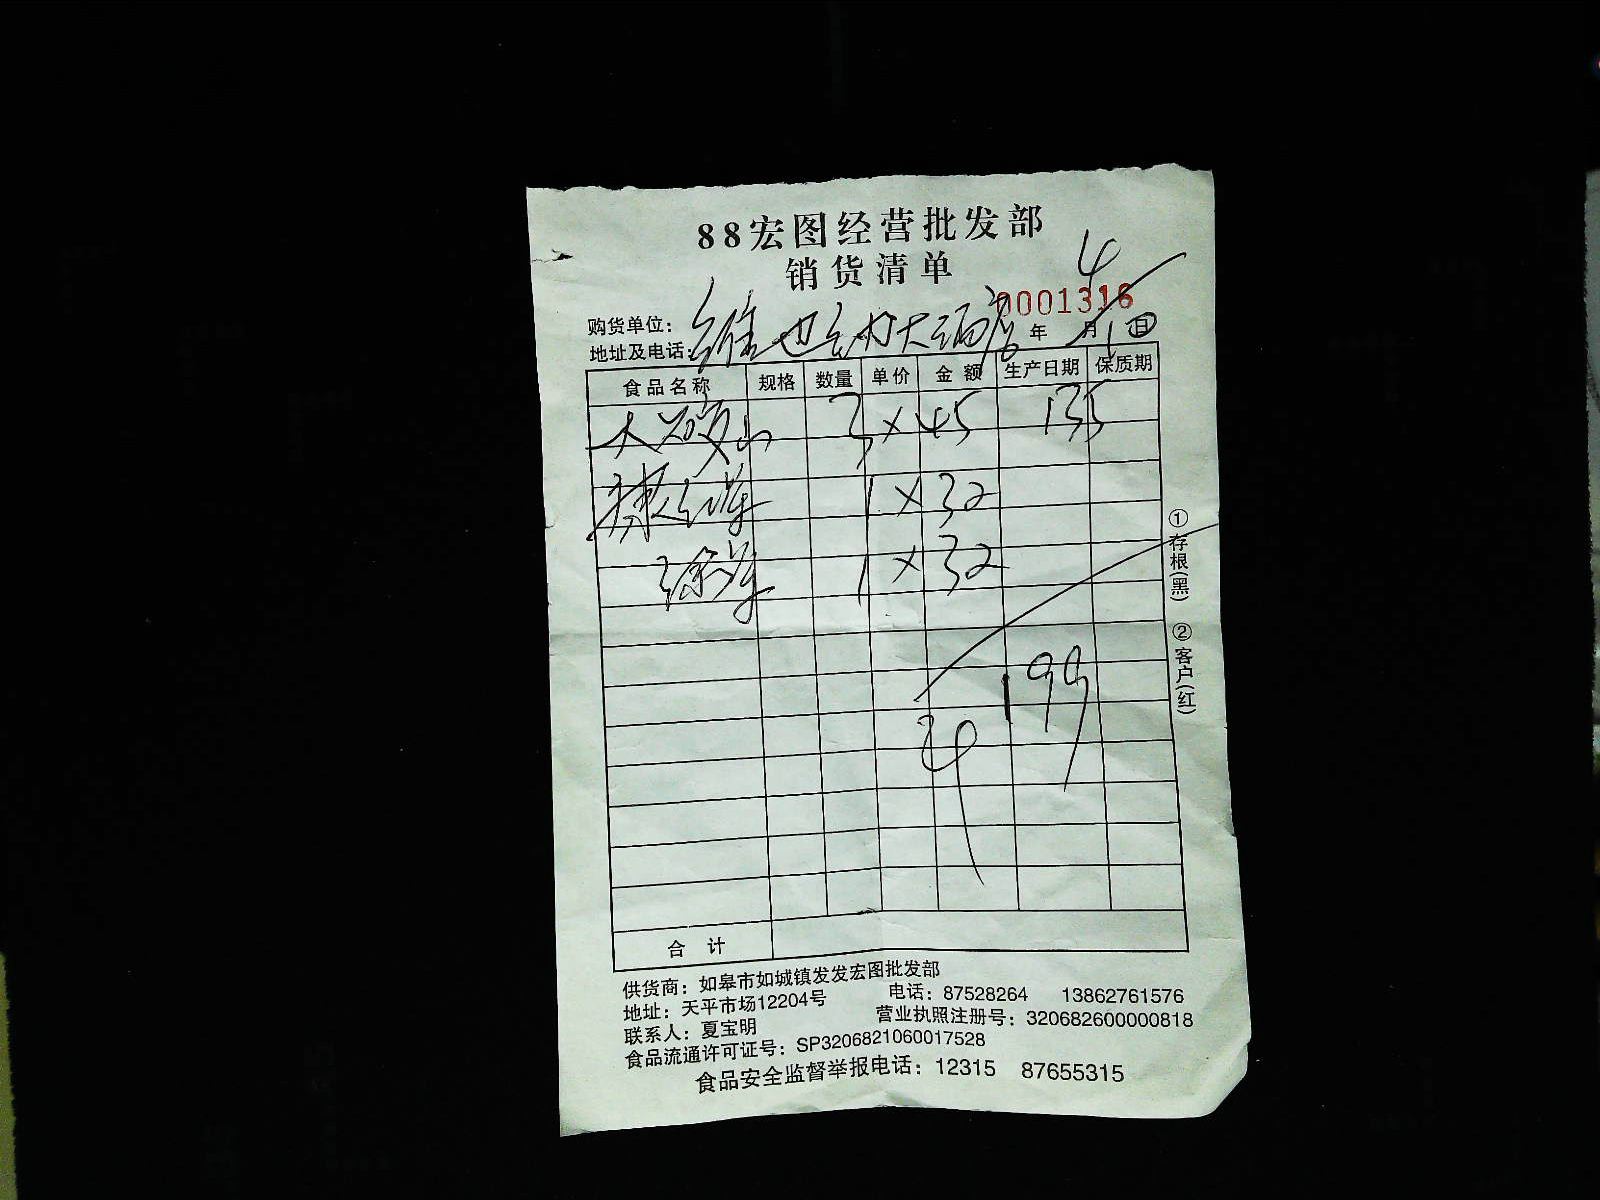 88宏图经营批发部
销货清单
0001316
购货单位：
地址及电话：维也纳大酒店 年 4月1日
食品名称 规格 数量 单价 金额 生产日期 保质期
大 3×45 135
1×32
1×32
199
合计
①存根(黑) ②客户(红)
供货商：如皋市如城镇发发宏图批发部
地址：天平市场12204号 电话：87528264 13862761576
联系人：夏宝明 营业执照注册号：320682600000818
食品流通许可证号：SP3206821060017528
食品安全监督举报电话：12315 87655315